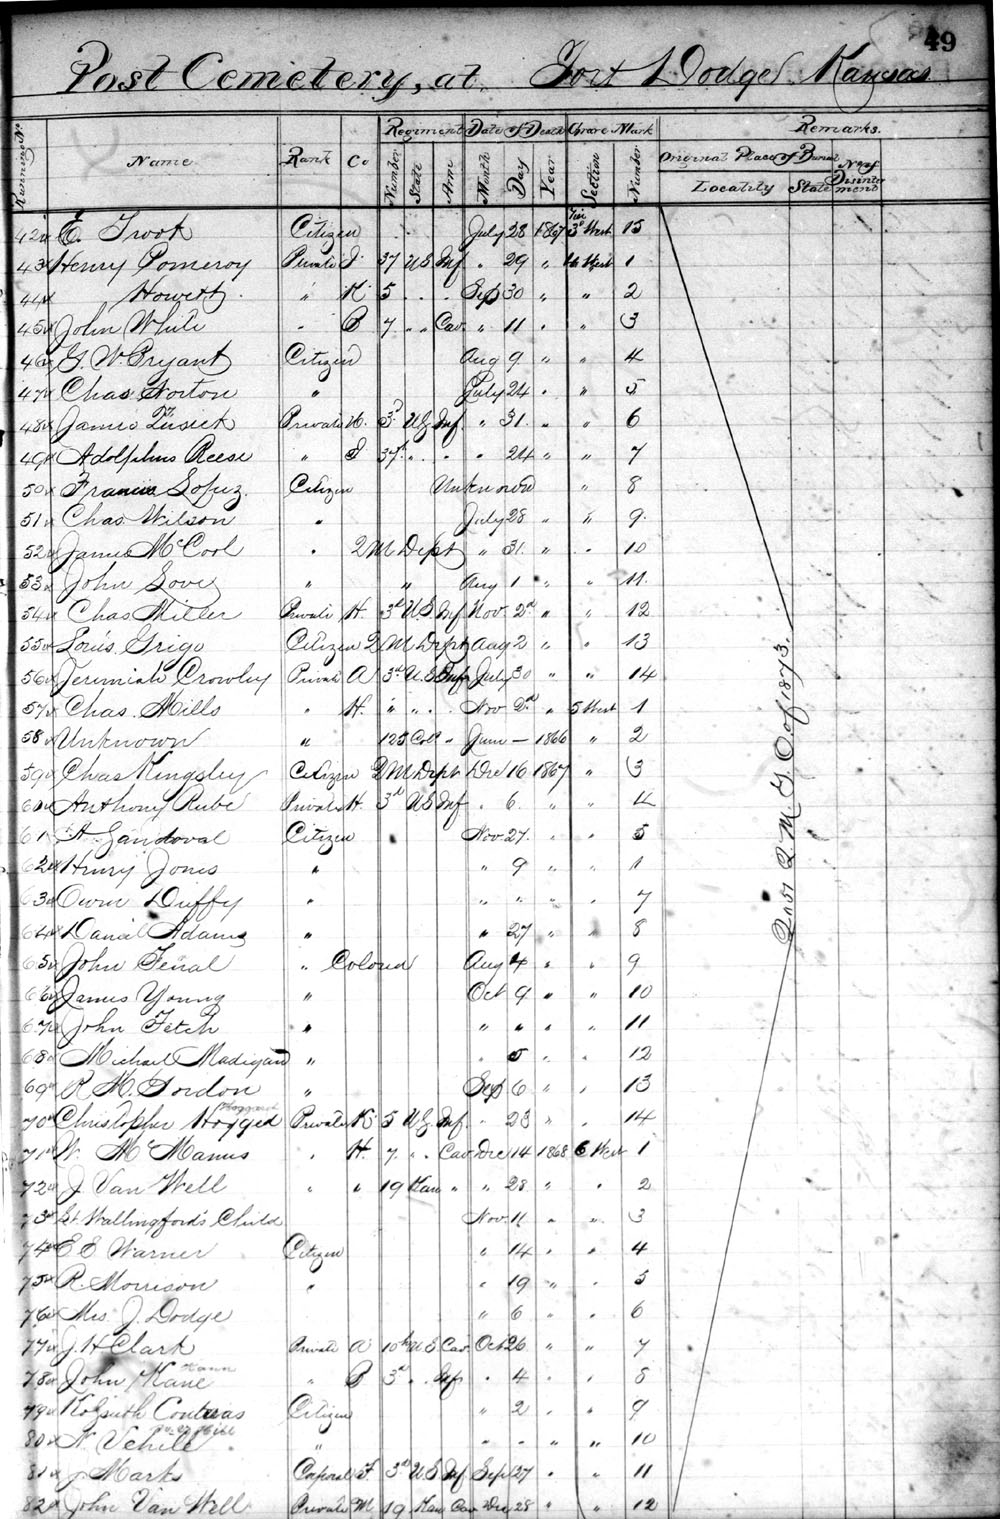 49
Post Cemetery, at Fort Dodge Kansas
Regiment Date of Death Grave Mark Remarks.
Running No. Name Rank Co Number State Arm Month Day Year Section Number Original Place of Burial No. of Disinterment
Locality State
42 E. Trook Citizen July 28 1867 Tier 3d West 15
43 Henry Pomeroy Private I 37 U S Inf " 29 " 4 West 1
44 Howett " K 5 . . Sep 30 " " 2
45 John White " B 7 " " Cav " 11 " " 3
46 G. W. Bryant Citizen Aug 9 " " 4
47 Chas Norton " July 24 " " 5
48 James Private H. 3d U S Inf " 31 " " 6
49 Adolphus Reese " I 37th " " " 24 " " 7
50 Francis Lopez. Citizen Unknown " 8
51 Chas Wilson " July 28 " " 9
52 James McCool " Q M Dept " 31 " " 10
53 John Love " " Aug 1 " " 11
54 Chas Miller Private H. 3d U.S Inf Nov 2d " " 12
55 Louis Grigo Citizen Q M Dept Aug 2 " " 13
56 Jeremiah Crowley Private A 3d U.S Inf July 30 " " 14
57 Chas. Mills " H. " " . Nov 2d " 5 West 1
58 Unknown " 125 Cold " June — 1866 " 2
59 Chas Kingsley Citizen Q M Dept Dec 16 1867 " 3
60 Anthony Rube Private H. 3d U S Inf " 6 " " 4
61 A. Sandoval Citizen Nov 27 " " 5
62 Henry Jones " " 9 " "
63 Owen Duffy " " " " " 7
64 Daniel Adams " " 27 " " 8
65 John Fenal " Colored Aug 4 " " 9
66 James Young " Oct 9 " " 10
67 John Fetch " " " " " 11
68 Michael Madigan " " 5 " " 12
69 R. M. Gordon " Sep 6 " " 13
70 Christopher Private K 5 U S Inf. " 23 " " 14
71 W. McManus " H. 7 " " Cav Dec 14 1868 6 West 1
72 J. Van Well " " 19 Kan " " 28 " " 2
73 Lt. Wallingford's Child Nov 11 " " 3
74 E E Warner Citizen " 14 " " 4
75 R. Morrison " " 19 " " 5
76 Mrs. J. Dodge " 6 " " 6
77 J. H Clark Private A 10th U.S Cav Oct 26 " " 7
78 John Kane " B 3d . . Inf " 4 " " 8
79 Contreas Citizen " 2 " " 9
80 N. Schill " " " " " 10
81 J Marks Corporal F. 3d U.S Inf Sep 27 " " 11
82 John Van Well Private M 19 Kan Cav Dec 28 " " 12
2nd Q. M. G. O. of 1873.